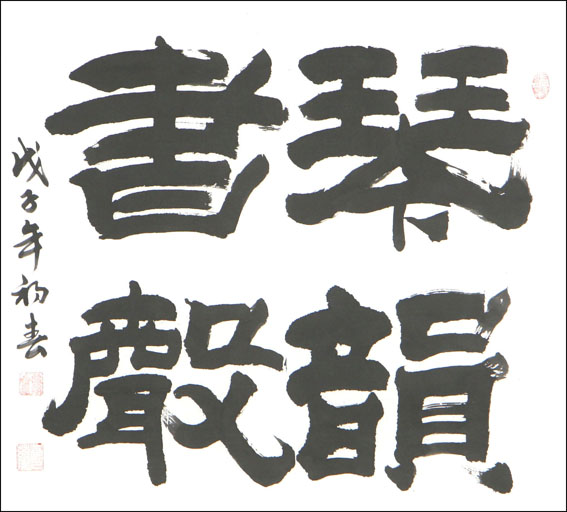 琴韻
書聲
戊子年初春